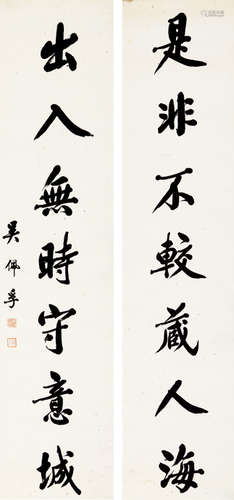 是非不較藏人海
出入無時守意城
吳佩孚